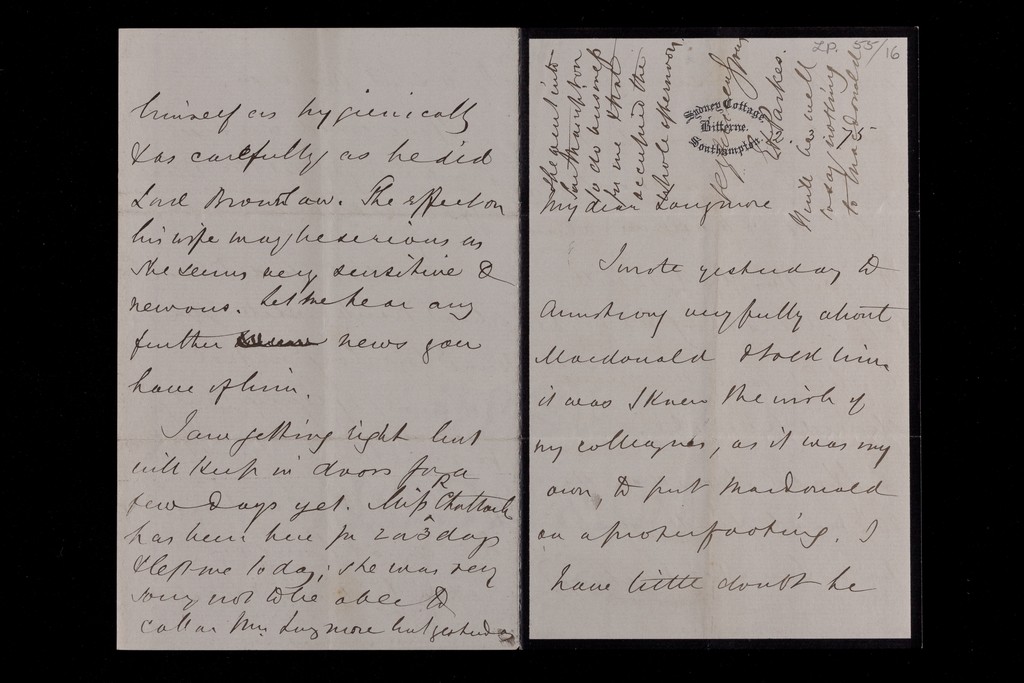 himself as hygienically
& as carefully as he did
Lord Brownlow. The effect on
his wife may be serious as
she seems very sensitive &
nervous. Let me hear any
further news you
have of him.
I am getting right but
will keep in doors for a
few days yet. Miss Chattock
has been here for 2 or 3 days
& left me to day; she was very
sorry not to be able to
call on Mrs Longmore but yesterday
ZP. 55/16
she went into
Southampton
to do business
for me & that
occupied the
whole afternoon
yours
E A Parkes
While as well
to say nothing
to MacDonald
Sydney Cottage,
Bitterne.
Southampton.
My dear Longmore
I wrote yesterday to
Armstrong very fully about
Macdonald & told him
it was I knew the wish of
my colleagues, as it was my
own, to put MacDonald
on a proper footing. I
have little doubt he